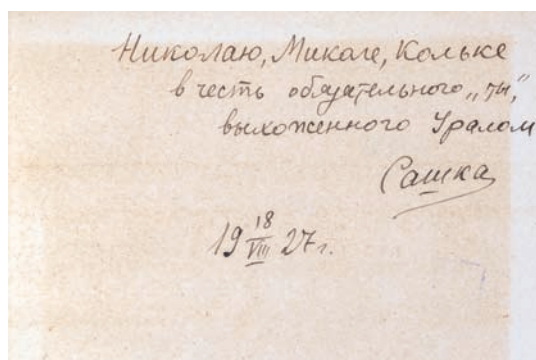 Николаю, Микале, Кольке
в честь обязательного „ты“,
выхоженного Уралом
Сашка
19 18/VIII 27 г.